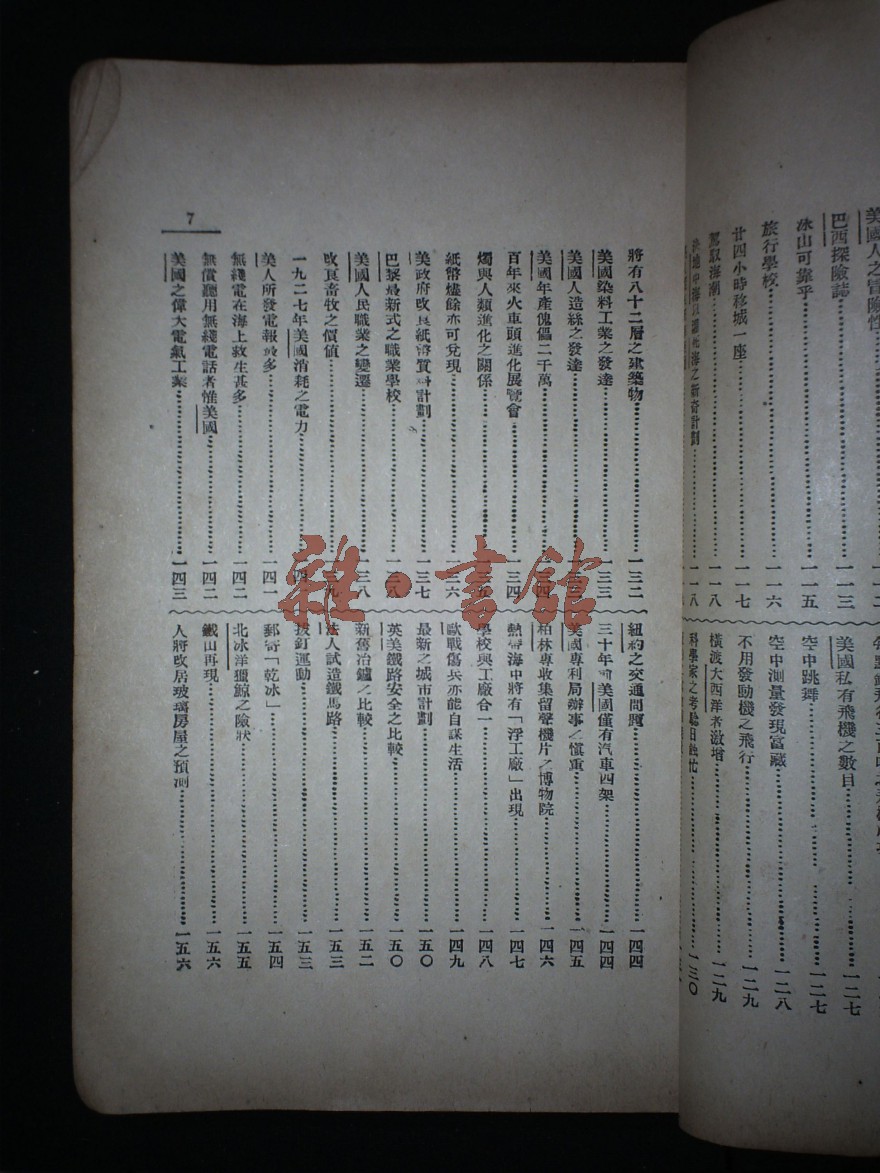 美國人之冒險性
巴西探險誌……一一三
冰山可靠乎……一一五
旅行學校……一一六
廿四小時移城一座……一一七
駕馭海潮……一一八
美國私有飛機之數目……一二七
空中跳舞……一二七
空中測量發現富藏……一二八
不用發動機之飛行……一二九
橫渡大西洋者激增……一二九
一三〇
將有八十二層之建築物……一三二
美國染料工業之發達……一三三
美國人造絲之發達……一三三
美國年產傀儡二千萬……一三四
百年來火車頭進化展覽會……一三四
燭與人類進化之關係……一三五
紙幣燼餘亦可兌現……一三六
美政府改良紙幣質料計劃……一三七
巴黎最新式之職業學校……一三八
美國人民職業之變遷……一三八
改良畜牧之價值……一三九
一九二七年美國消耗之電力……一四〇
美人所發電報最多……一四一
無綫電在海上救生甚多……一四二
無償聽用無綫電話者惟美國……一四二
美國之偉大電氣工業……一四三
紐約之交通問題……一四四
三十年前美國僅有汽車四架……一四四
美國專利局辦事之慎重……一四五
柏林專收集留聲機片之博物院……一四六
熱帶海中將有「浮工廠」出現……一四七
學校與工廠合一……一四八
歐戰傷兵亦能自謀生活……一四九
最新之城市計劃……一五〇
英美鐵路安全之比較……一五〇
新舊冶鑪之比較……一五二
法人試造鐵馬路……一五三
拔釘運動……一五三
郵寄「乾冰」……一五四
北冰洋獵鯨之險狀……一五五
鐵山再現……一五六
人將改居玻璃房屋之預測……一五六
7
雜·書館